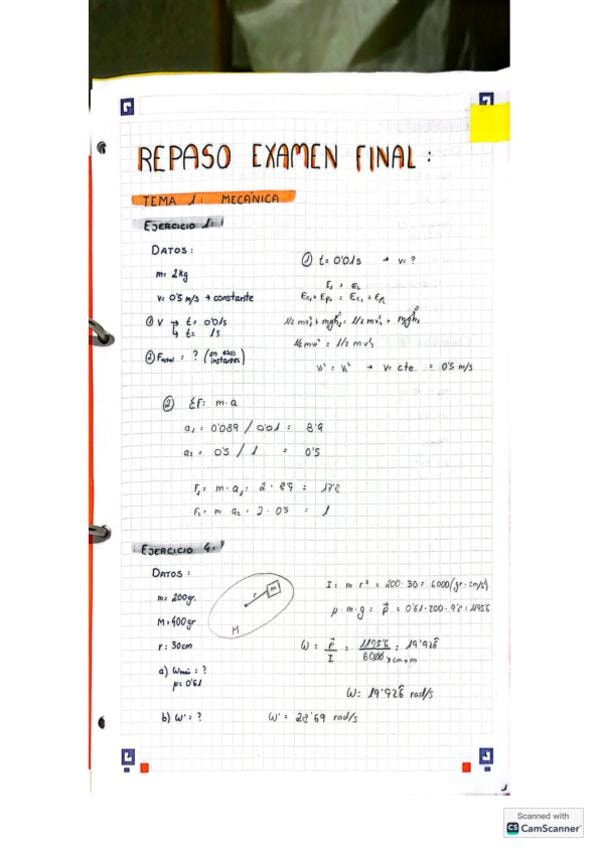 REPASO EXAMEN FINAL :
TEMA 1: MECÁNICA
EJERCICIO 1:
DATOS :
m= 2kg
v= 0'5 m/s → constante
① V → t= 0'01s
↳ t= 1s
② Ftotal = ? (en esos instantes)
① t= 0'01s → v= ?
E1 = E2
Ec1 + Ep1 = Ec2 + Ep2
1/2 mv²1 + mgh1 = 1/2 mv²2 + mgh2
v1² = v2² → v= cte. = 0'5 m/s
② ΣF= m·a
a1 = 0'089 / 0'01 = 8'9
a2 = 0'5 / 1 = 0'5
F1= m·a1= 2 · 8'9 = 17'8
F2= m a2 = 2 · 0'5 = 1
EJERCICIO 4:
DATOS :
m= 200gr.
M= 400gr
r= 30cm
a) ωmáx = ?
μ= 0'61
b) ω' = ?
r
m
M
I= m r² = 200 · 30 = 6000 (gr·cm/s²)
μ·m·g = p = 0'61 · 200 · 9'8 = 1195'6
ω= 19'926 rad/s
ω' = 28'69 rad/s
Scanned with
CS CamScanner